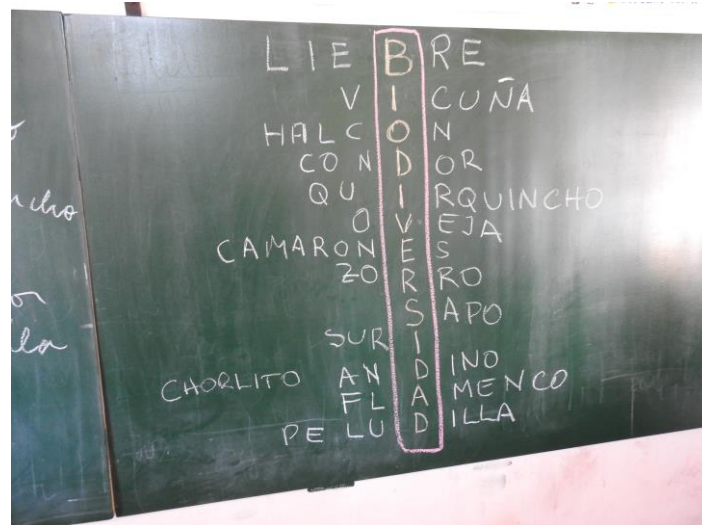 LIEBRE
VICUÑA
HALCON
CONDOR
QUIRQUINCHO
OVEJA
CAMARONES
ZORRO
SAPO
SURI
CHORLITO ANDINO
FLAMENCO
PELUDDILLA